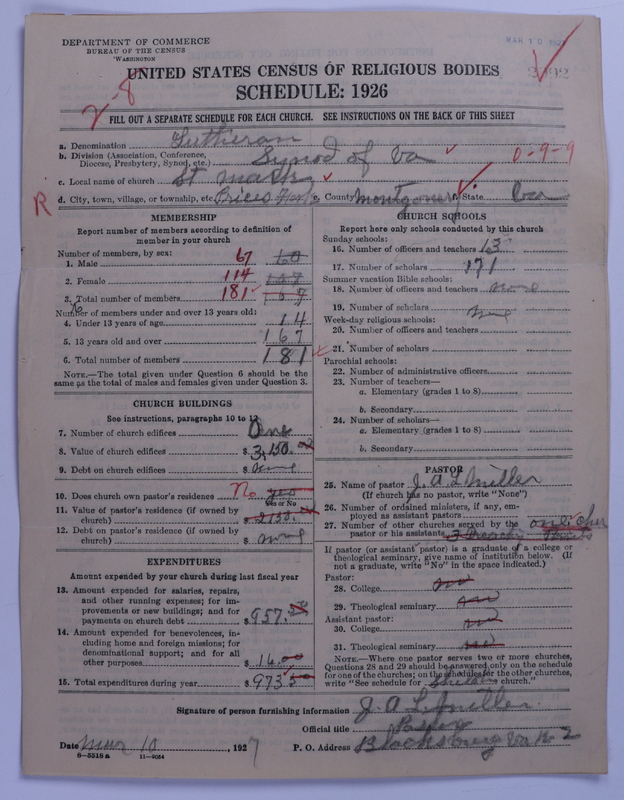 DEPARTMENT OF COMMERCE
BUREAU OF THE CENSUS
WASHINGTON
MAR 10 1927
UNITED STATES CENSUS OF RELIGIOUS BODIES
SCHEDULE: 1926
2-8
FILL OUT A SEPARATE SCHEDULE FOR EACH CHURCH. SEE INSTRUCTIONS ON THE BACK OF THIS SHEET
a. Denomination Lutheran
b. Division (Association, Conference, Diocese, Presbytery, Synod, etc.) Synod of Va
0-9-9
c. Local name of church St Marks
R
d. City, town, village, or township, etc. Prices Fork c. County Montgomery State Va
MEMBERSHIP
Report number of members according to definition of
member in your church
Number of members, by sex:
1. Male 67
2. Female 114
3. Total number of members 181
Number of members under and over 13 years old:
4. Under 13 years of age 14
5. 13 years old and over 167
6. Total number of members 181
NOTE.—The total given under Question 6 should be the
same as the total of males and females given under Question 3.
CHURCH BUILDINGS
See instructions, paragraphs 10 to 12
7. Number of church edifices One
8. Value of church edifices $ 3,150.00
9. Debt on church edifices $ none
10. Does church own pastor's residence No yes
Yes or No
11. Value of pastor's residence (if owned by
church) $ 2150.00
12. Debt on pastor's residence (if owned by
church) $ none
EXPENDITURES
Amount expended by your church during last fiscal year
13. Amount expended for salaries, repairs,
and other running expenses; for im-
provements or new buildings; and for
payments on church debt $ 957.
14. Amount expended for benevolences, in-
cluding home and foreign missions; for
denominational support; and for all
other purposes $ 16.00
15. Total expenditures during year $ 973.
CHURCH SCHOOLS
Report here only schools conducted by this church
Sunday schools:
16. Number of officers and teachers 13
17. Number of scholars 171
Summer vacation Bible schools:
18. Number of officers and teachers none
19. Number of scholars none
Week-day religious schools:
20. Number of officers and teachers
21. Number of scholars
Parochial schools:
22. Number of administrative officers
23. Number of teachers—
a. Elementary (grades 1 to 8)
b. Secondary
24. Number of scholars—
a. Elementary (grades 1 to 8)
b. Secondary
PASTOR
25. Name of pastor J. A. L. Miller
(If church has no pastor, write "None")
26. Number of ordained ministers, if any, em-
ployed as assistant pastors
27. Number of other churches served by the
pastor or his assistants 3
If pastor (or assistant pastor) is a graduate of a college or
theological seminary, give name of institution below. (If
not a graduate, write "No" in the space indicated.)
Pastor:
28. College no
29. Theological seminary no
Assistant pastor:
30. College no
31. Theological seminary no
NOTE.—Where one pastor serves two or more churches,
Questions 28 and 29 should be answered only on the schedule
for one of the churches; on the schedules for the other churches,
write "See schedule for church."
Signature of person furnishing information J. A. L. Miller
Official title Pastor
Date Mar 10, 1927 P. O. Address Blacksburg Va R 2
8-5518a 11-9054